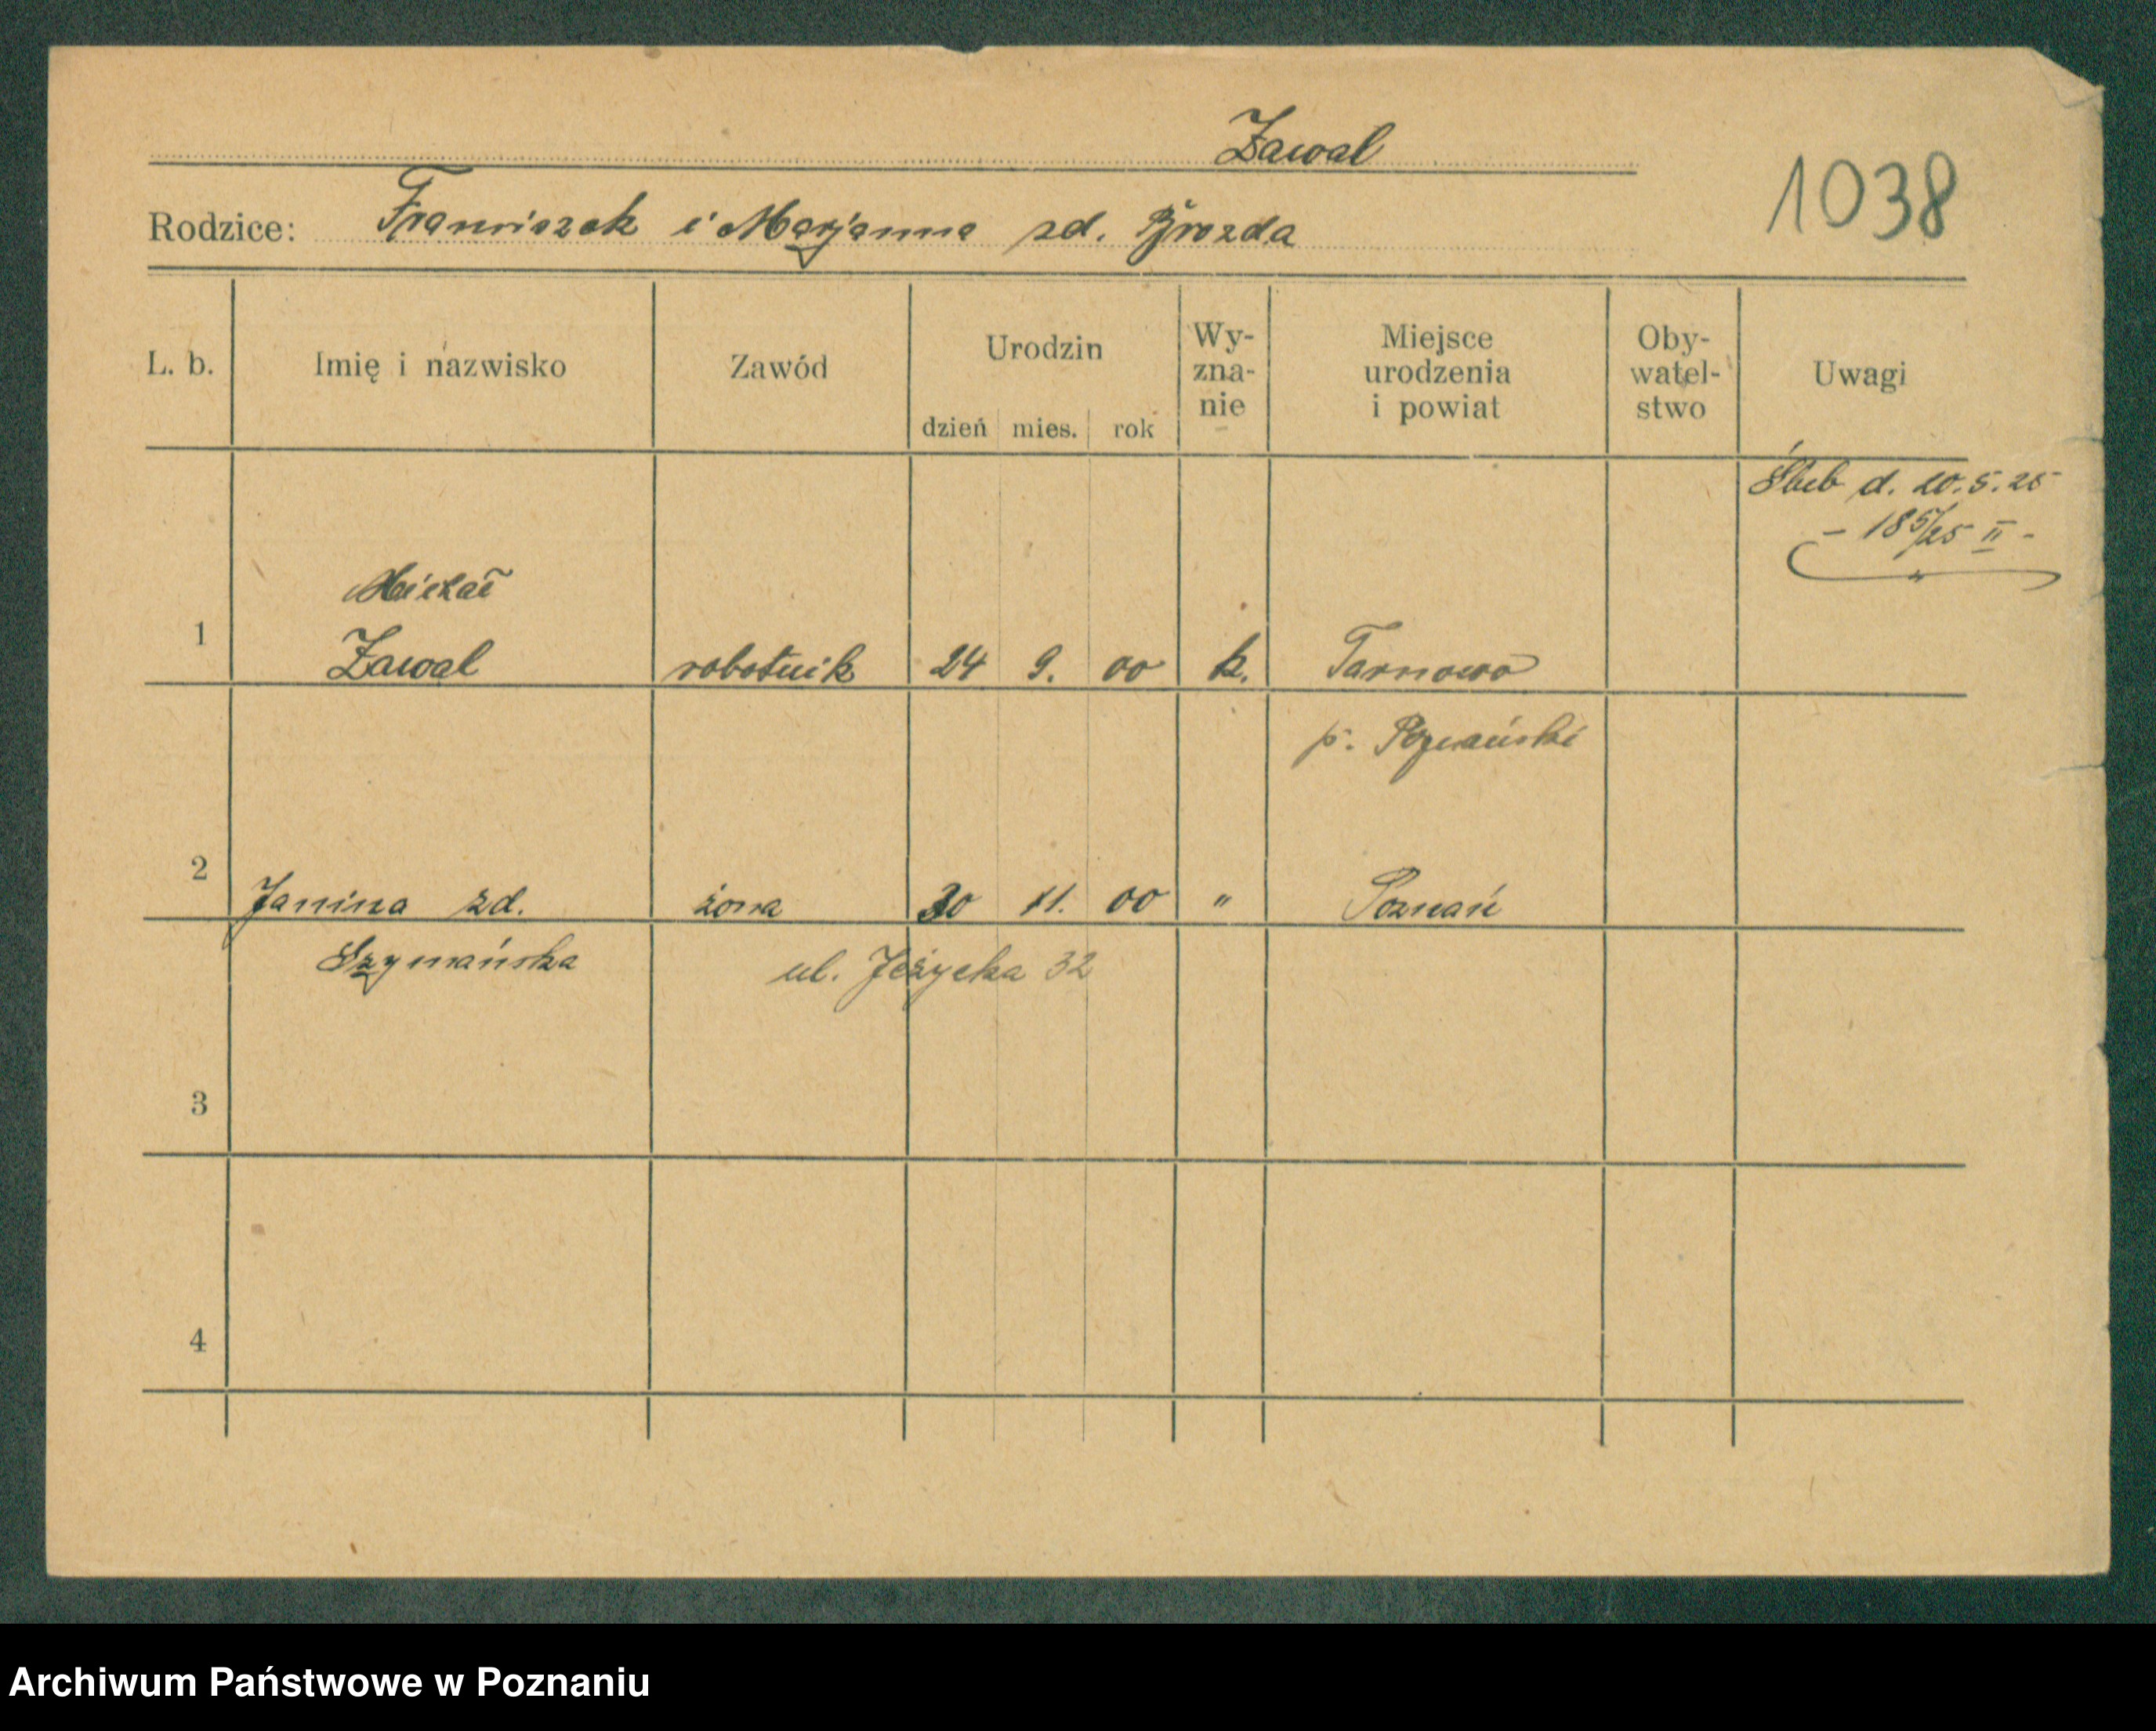 Zawal
1038
Rodzice: Franciszek i Marjanna zd. Brozda
L. b. Imię i nazwisko Zawód Urodzin dzień mies. rok Wy-zna-nie Miejsce urodzenia i powiat Oby-watel-stwo Uwagi
Ślub d. 10.5.25
- 185/25 II -
Michał
1 Zawal robotnik 24 9. 00 k. Tarnowo
p. Poznański
2 Janina zd. żona 30 11. 00 " Poznań
Szymańska ul. Jeżycka 32
3
4
Archiwum Państwowe w Poznaniu